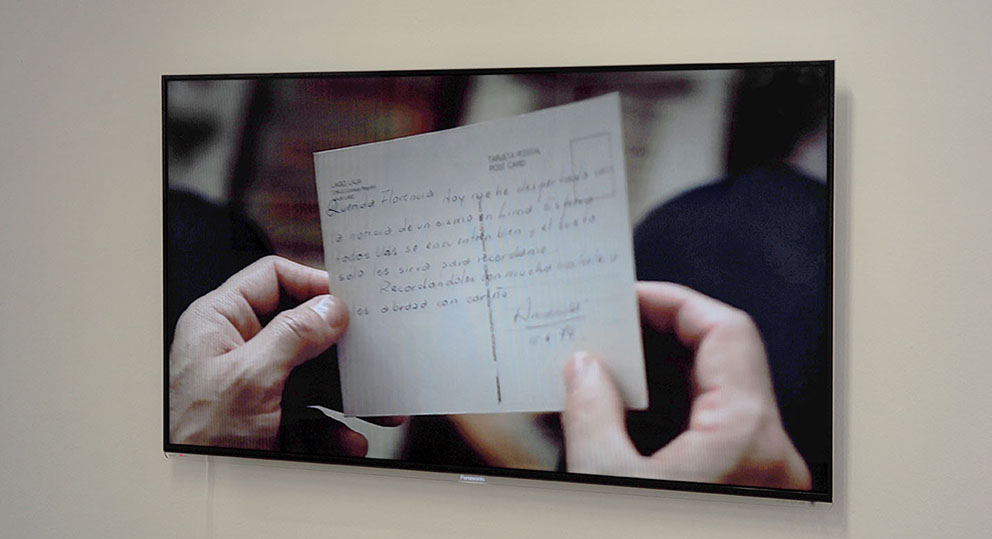 TARJETA POSTAL
POST CARD
Querida Florencia Hoy me he despertado con
la noticia de un sismo en Lima
todos Uds se encuentren bien y el susto
solo les sirva para recordarme.
Recordandolos con mucha
les abraza con cariño
Panasonic